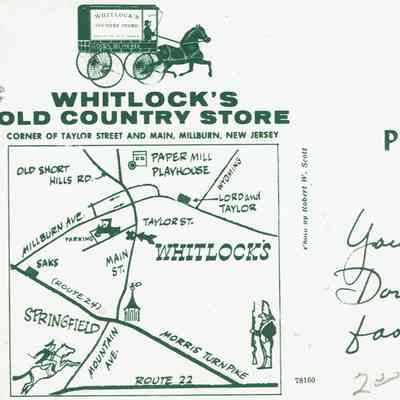 WHITLOCK'S
COUNTRY STORE
WHITLOCK'S
OLD COUNTRY STORE
CORNER OF TAYLOR STREET AND MAIN, MILLBURN, NEW JERSEY
PAPER MILL
PLAYHOUSE
OLD SHORT
HILLS RD.
WYOMING
LORD AND
TAYLOR
MILLBURN AVE.
TAYLOR ST.
PARKING
WHITLOCK'S
MAIN
ST.
SAKS
(ROUTE 24)
SPRINGFIELD
MOUNTAIN
AVE.
MORRIS TURNPIKE
ROUTE 22
Photo by Robert W. Scott
78160
P
You